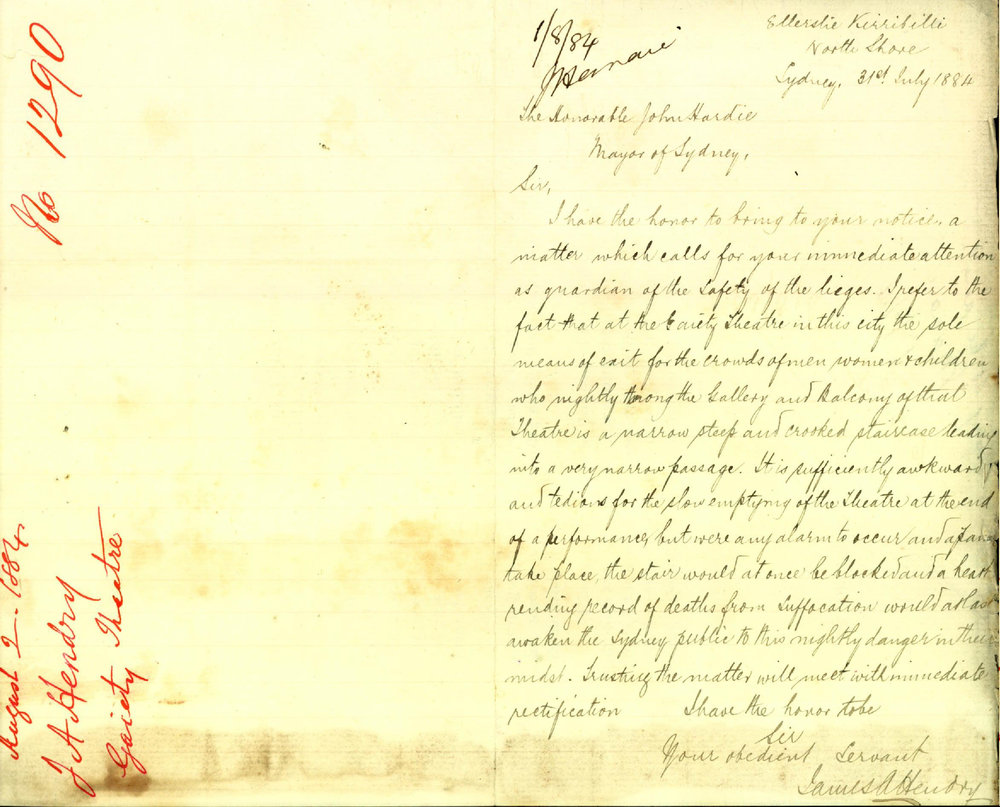 No 1290
August 2 - 1884
J A Hendry
Gaiety Theatre
1/8/84
Ellerslie Kirribilli
North Shore
Sydney, 31st July 1884
The Honorable John Hardie
Mayor of Sydney,
Sir,
I have the honor to bring to your notice, a
matter which calls for your immediate attention
as guardian of the safety of the lieges. I refer to the
fact that at the Gaiety Theatre in this city the sole
means of exit for the crowds of men women & children
who nightly throng the Gallery and Balcony of that
Theatre is a narrow steep and crooked staircase leading
into a very narrow passage. It is sufficiently awkward
and tedious for the slow emptying of the Theatre at the end
of a performance, but were any alarm to occur and a panic
take place, the stair would at once be blocked and a heart
rending record of deaths from suffocation would at last
awaken the Sydney public to this nightly danger in their
midst. Trusting the matter will meet with immediate
rectification I have the honor to be
Sir
Your obedient Servant
James A Hendry